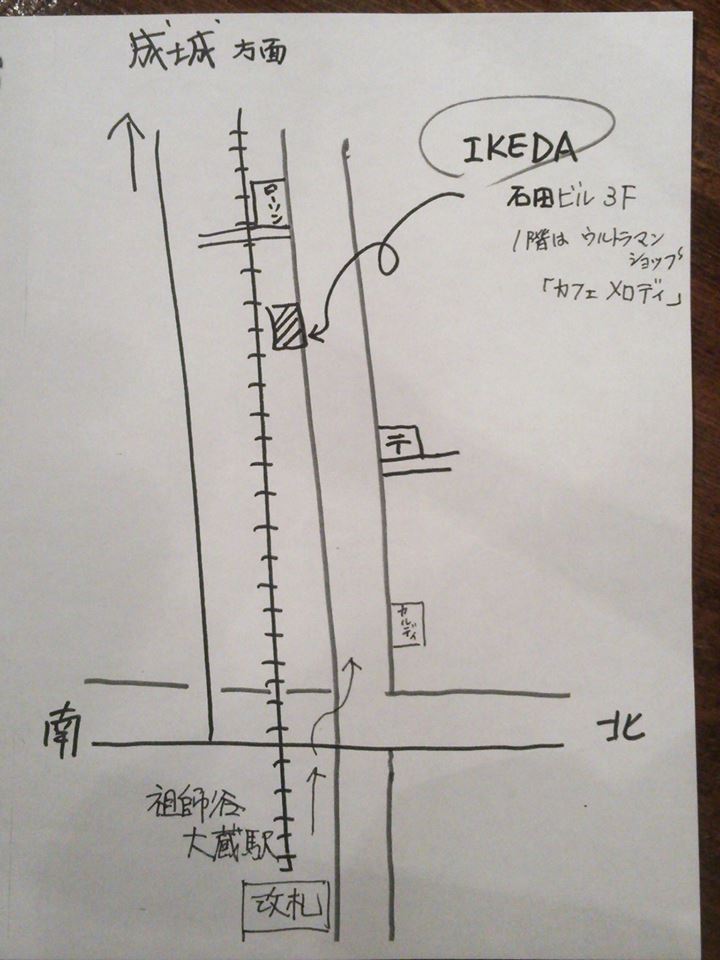 成城 方面
IKEDA
石田ビル 3F
1階は ウルトラマン
ショップ
「カフェ メロディ」
ローソン
〒
カルディ
南
北
祖師谷
大蔵駅
改札